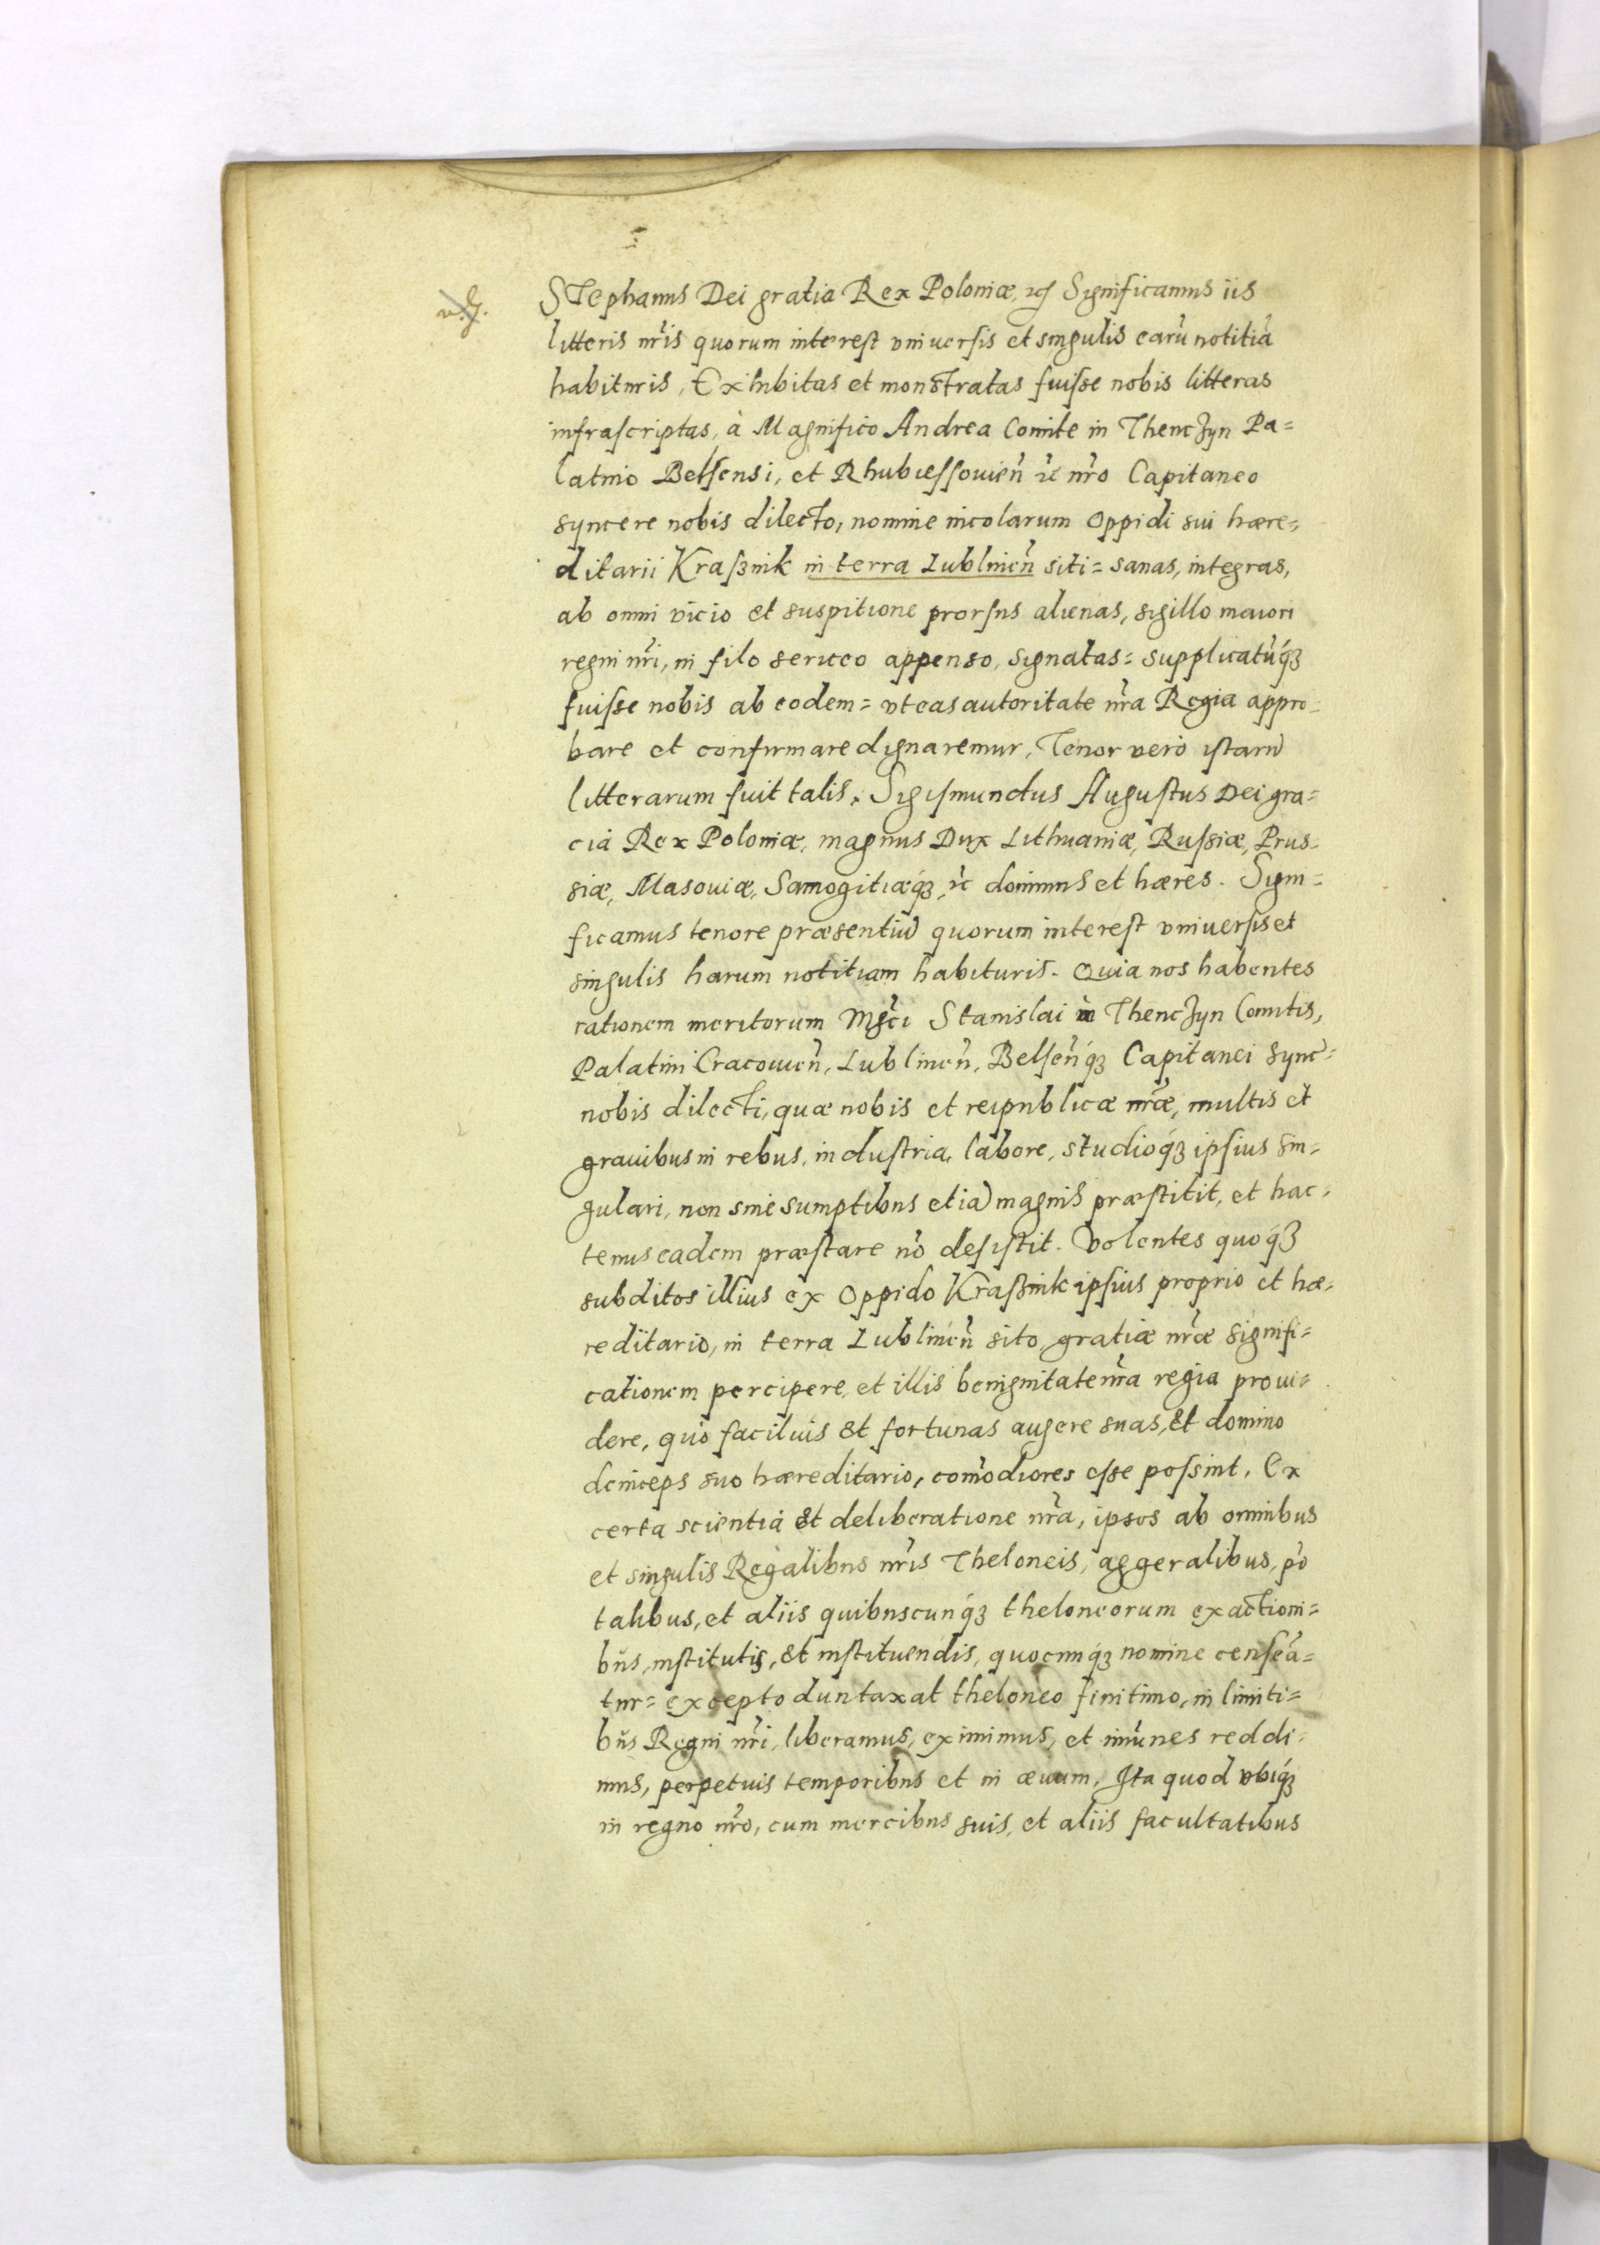 Stephanus Dei gratia Rex Poloniæ, etc Significamus iis
litteris nr̃is quorum interest vniuersis et singulis earũ notitiã
habituris, Exhibitas et monstratas fuisse nobis litteras
infrascriptas, à Magnifico Andrea Comite in Thenczyn Pa=
latino Belsensi, et Rhubiessouień etc nr̃o Capitaneo
syncere nobis dilecto, nomine incolarum Oppidi sui hære=
ditarii Kraßnik in terra Lublineñ siti= sanas, integras,
ab omni vicio et suspitione prorsus alienas, sigillo maiori
regni nr̃i, in filo sericeo appenso, signatas= supplicatũq́ꝫ
fuisse nobis ab eodem= vt eas autoritate nr̃a Regia appro=
bare et confirmare dignaremur, Tenor vero istarũ
litterarum fuit talis. Sigismundus Augustus Dei gra=
cia Rex Poloniæ, magnus Dux Lithuaniæ, Russiæ, Prus=
siæ, Masouiæ, Samogitiæq́ꝫ, etc dominus et hæres. Signi=
ficamus tenore præsentiũ quorum interest vniuersis et
singulis harum notitiam habituris. Quia nos habentes
rationem meritorum Mg̃ci Stanislai in Thenczyn Comitis,
Palatini Cracouień, Lublineñ, Belseñq́ꝫ Capitanei Sync̃=
nobis dilecti, quæ nobis et reipublicæ nr̃æ, multis et
grauibus in rebus, industria, labore, studioq́ꝫ ipsius sin=
gulari, non sine sumptibus etiã magnis præstitit, et hac=
tenus eadem præstare nõ desistit. Volentes quoq́ꝫ
subditos illius ex Oppido Kraßnik ipsius proprio et hæ=
reditario, in terra Lublineñ sito gratiæ nr̃æ signifi=
cationem percipere, et illis benignitate nr̃a regia proui=
dere, quo facilius et fortunas augere suas, et domino
deinceps suo hæreditario, com̃odiores esse possint, Ex
certa scientia et deliberatione nr̃a, ipsos ab omnibus
et singulis Regalibus nr̃is Theloneis, aggeralibus, põ
talibus, et aliis quibuscunq́ꝫ theloneorum exactioni=
bũs, institutis, et instituendis, quocunq́ꝫ nomine censeã=
tur= excepto duntaxat theloneo finitimo, in limiti=
bũs Regni nr̃i, liberamus, eximimus, et imũnes reddi=
mus, perpetuis temporibus et in æuum, Ita quod vbiq́ꝫ
in regno nr̃o, cum mercibus suis, et aliis facultatibus